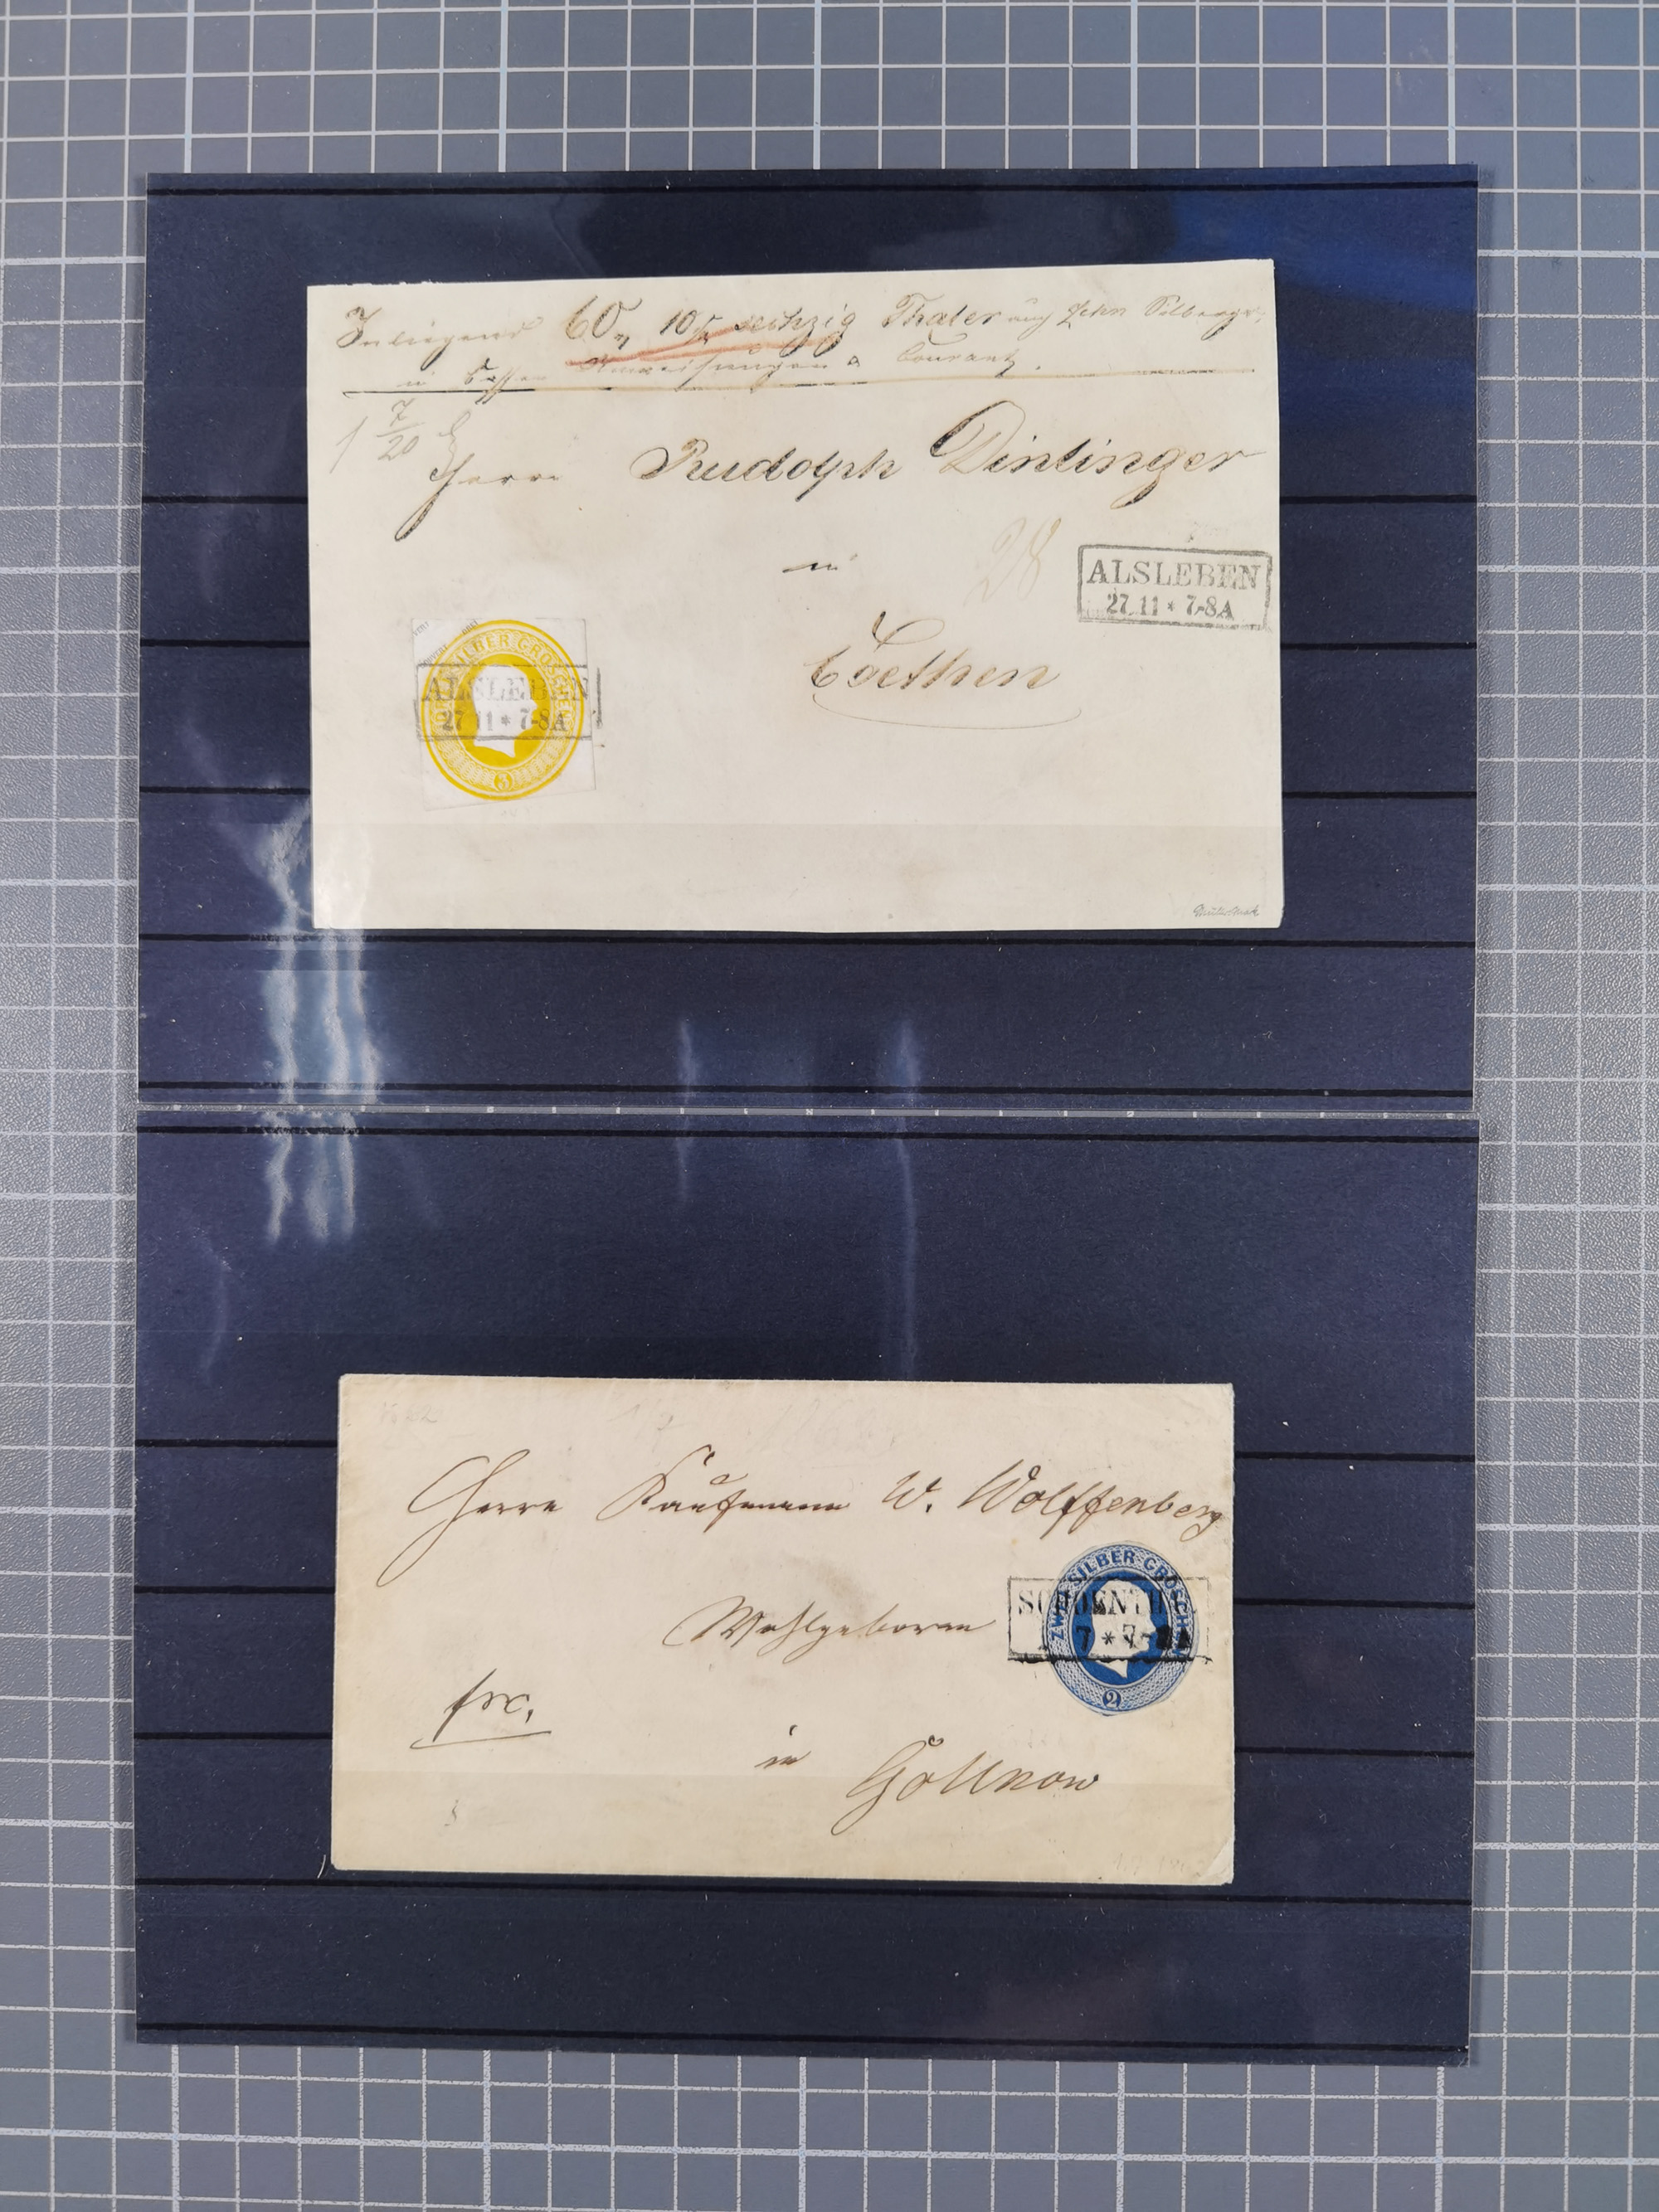 Inliegend 60 10 sechzig Thaler und Zehn Silbergr.
in Kassen Anweisungen & Courant.
7
20
Herrn Rudolph Dintinger
in
28
ALSLEBEN
27 11 * 7-8A
Coethen
SILBER GROSCHEN
ALSLEBEN
27 11 * 7-8A
3
Herrn Kaufmann W. Wolffenberg
Wohlgeboren
ZWEI SILBER GROSCHEN
7 * 7-
2
frc.
in Gollnow